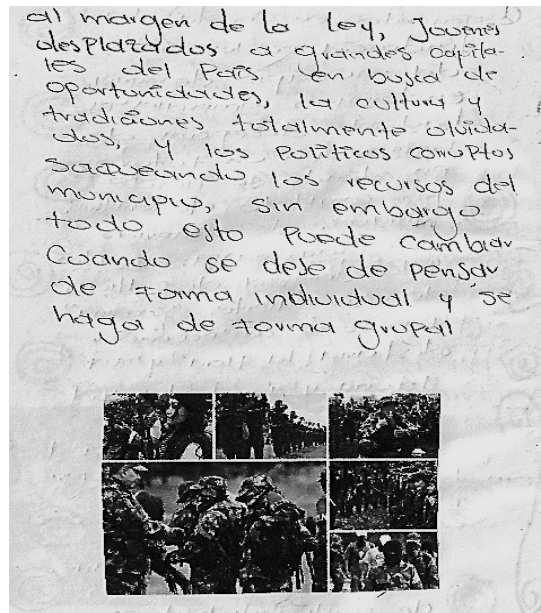 al margen de la ley, Jovenes
desplazados a grandes capita-
les del País en busca de
oportunidades, la cultura y
tradiciones totalmente olvida-
dos, y los Políticos corruptos
saqueando los recursos del
municipio, sin embargo
todo esto Puede cambiar
Cuando se deje de pensar
de forma individual y se
haga de forma grupal